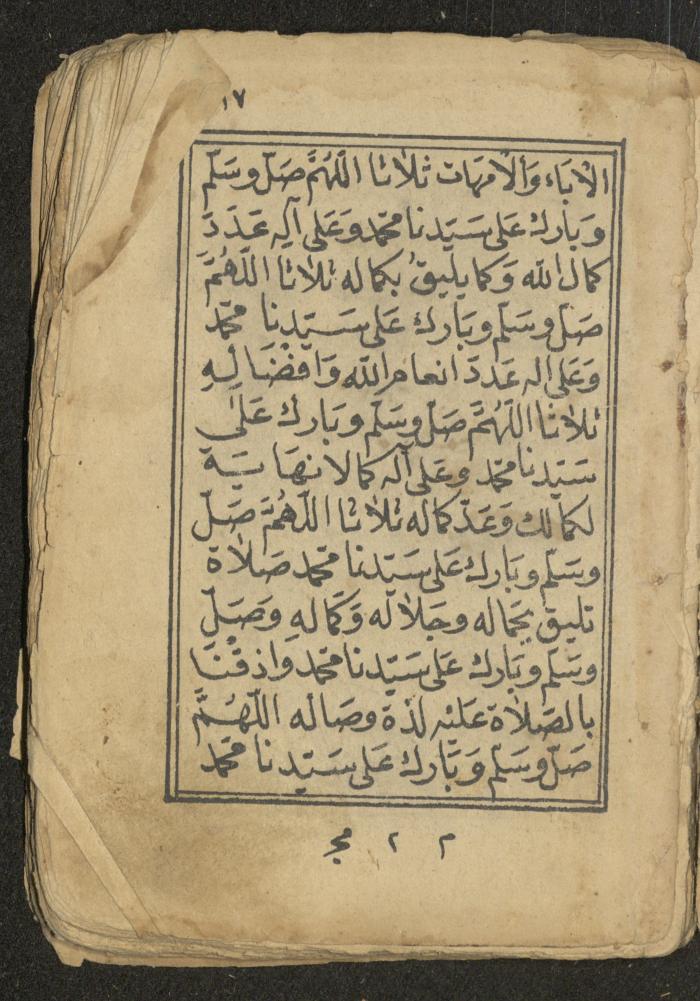 ١٧
الاٰبَاء وَالْامهَات ثلاثا اللّٰهُمَّ صَلّ وسَلّم
وَبَارك عَلى سَيّدنا محمّد وَعَلى آلِه عَدَدَ
كمال اللّه وَكما يليقُ بكماله ثلاثا اللّٰهُمَّ
صَلّ وسَلّم وبَارك عَلى سَيّدنا محمّد
وَعَلى اٰله عَدَدَ انعام اللّه وَافْضَالِهِ
ثلاثا اللّٰهُمَّ صَلّ وسَلّم وبَارك عَلٰى
سَيّدنا محمّد وعَلى آله كما لا نهَايَة
لكمالك وَعَدّ كماله ثلاثا اللّٰهُمَّ صَلّ
وسَلّم وبَارك عَلى سَيّدنا محمّد صَلاٰة
تليق بجماله وجَلاٰله وَكمَاله وَصَلّ
وسَلّم وبَارك عَلى سَيّدنا محمّد وَاذقْنَا
بالصَلاٰة عَليْه لذة وصَاله اللّٰهُمَّ
صَلّ وسَلّم وَبَارك عَلى سَيّدنا محمّد
م ٢ مج